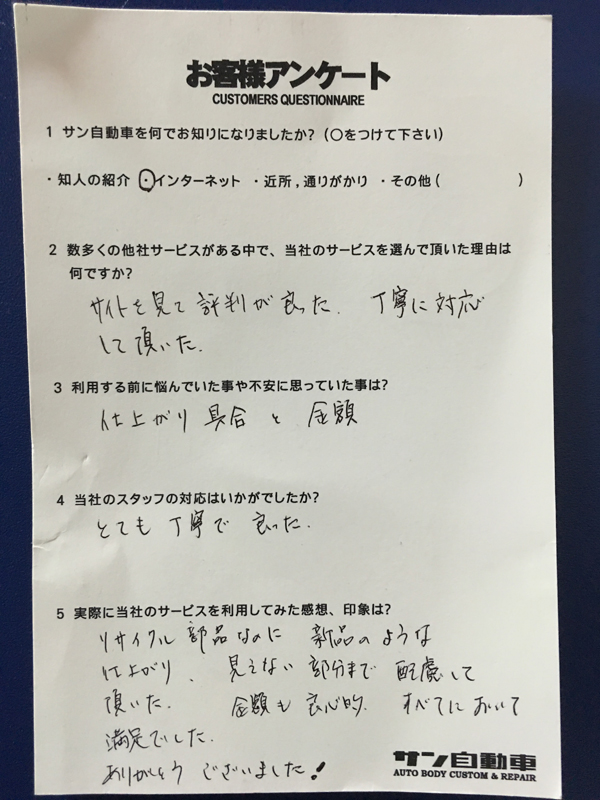 お客様アンケート
CUSTOMERS QUESTIONNAIRE
1 サン自動車を何でお知りになりましたか?(○をつけて下さい)
・知人の紹介 ・インターネット ・近所,通りがかり ・その他( )
2 数多くの他社サービスがある中で、当社のサービスを選んで頂いた理由は
何ですか?
サイトを見て 評判が良った. 丁寧に対応
して頂いた.
3 利用する前に悩んでいた事や不安に思っていた事は?
仕上がり 具合 と 金額
4 当社のスタッフの対応はいかがでしたか?
とても 丁寧で 良った.
5 実際に当社のサービスを利用してみた感想、印象は?
リサイクル 部品なのに 新品のような
仕上がり、見えない 部分まで 配慮して
頂いた. 金額も 良心的. すべてにおいて
満足でした.
ありがとう ございました!
サン自動車
AUTO BODY CUSTOM & REPAIR